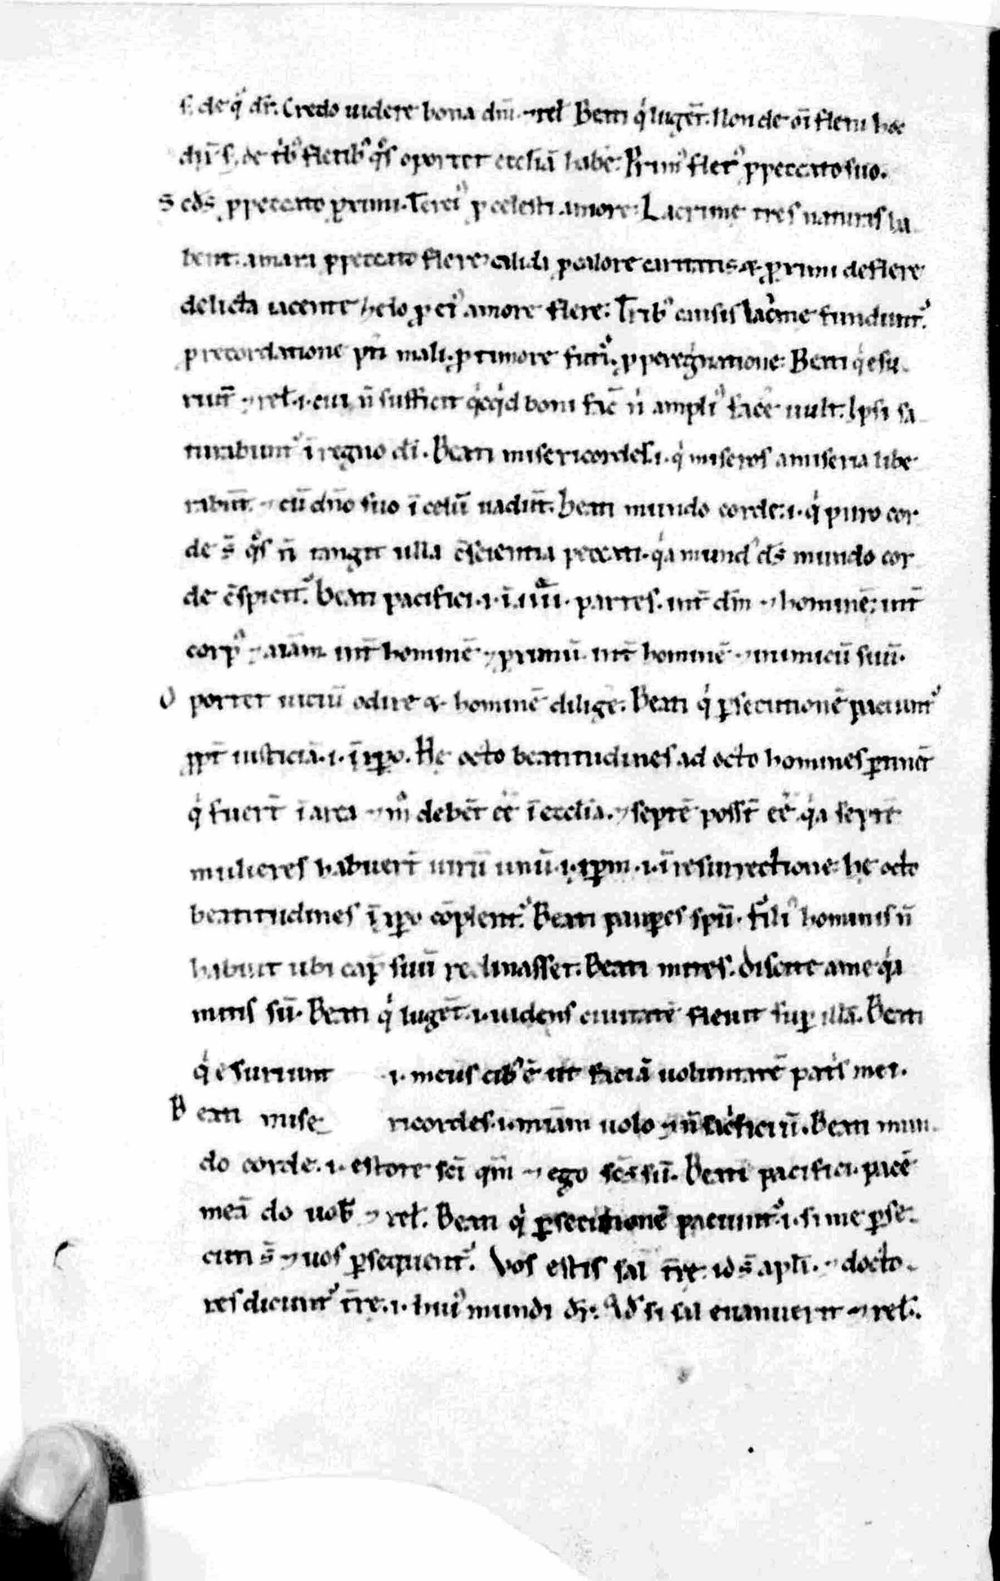 s. de q̊ dr̃. Credo uidere bona dñi ⁊ rel̃ Beati q̇ lugẽt. Non de oĩ fletu hoc
dix̃ s. de trib᾽ fletib᾽ q̊s oportet ecclesiã habẽ. Prim᾽ flet᾽ ꝓ peccato suo.
Scd̃s ꝓ peccato ꝓximi. Terci᾽ ꝓ celesti amore. Lacrime tres naturas ha
bent. amara ꝓ peccato flere. calidi ꝓ calore caritatis & ꝓximi deflere
delicta iacente gelo ꝓ ei᾽ amore flere. Trib᾽ causis lac̊me fundunt᾽
ꝓ recordatione pt̃i mali. ꝓ timore futuri. ꝓ peregrinatione. Beati q̇ esu
riũt ⁊ rel̃. i. cui ñ sufficit q̇cq̇d boni fac̃ ñ ampli᾽ facẽ uult. Ipsi sa
turabunt᾽ ĩ regno dĩ. Beati misericordes. i. q̇ miseros a miseria libe
rabũt ⁊ cũ dño suo ĩ celũ uadũt. Beati mundo corde. i. q̇ puro cor
de s̃ q̊s ñ tangit ulla c̃scientia peccati. q̇a mund᾽ ds̃ mundo cor
de c̃spicit᾽. Beati pacifici. i. ĩ. iiii. partes. int̃ dm̃ ⁊ hominẽ. int̃
corp᾽ ⁊ aiãm int̃ hominẽ ⁊ ꝓximũ. int̃ hominẽ ⁊ inimicũ suũ.
Oportet uiciũ odire & hominẽ diligẽ. Beati q̇ ꝑsecutionẽ paciunt᾽
ꝓpt̃ iusticiã. i. ĩ xp̃o. He octo beatitudines ad octo homines ꝑtinẽt
q̇ fuer̃t ĩ arca ⁊ m̊ debẽt eẽ ĩ ecclesia. ⁊ septẽ possẽt eẽ q̇a septẽ
mulieres habuer̃t uirũ unũ. i. xp̃m. i. ĩ resurrectione he octo
beatitudines ĩ xp̃o cõplent᾽. Beati pauꝑes spũ. fili᾽ hominis ñ
habuit ubi cap̃ suũ reclinasset. Beati mites. discite a me q̇a
mitis sũ. Beati q̇ lugẽt. i. uidens ciuitatẽ fleuit suꝑ illã. Beati
q̇ esuriunt i. meus cib᾽ ẽ ut faciã uoluntatẽ pat̃s mei.
Beati mise ricordes. i. miãm uolo ⁊ ñ sac̊ficiũ. Beati mun
do corde. i. estote sc̃i qm̃ ⁊ ego sc̃s sũ. Beati pacifici. pacẽ
meã do uob̃ ⁊ rel̃. Beati q̇ ꝑsecutionẽ paciunt᾽. i. si me ꝑse
cuti s̃ ⁊ uos ꝑsequent᾽. Vos estis sal t̃re. id s̃ apl̃i. ⁊ docto
res dicunt᾽ t̃re. i. hui᾽ mundi dr̃. Qd̃ si sal euanuerit ⁊ rel̃.